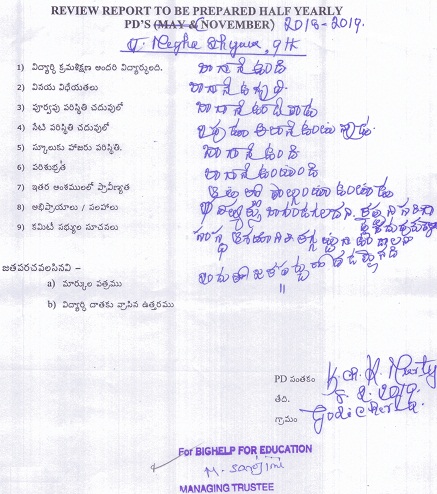 REVIEW REPORT TO BE PREPARED HALF YEARLY
PD'S (MAY & NOVEMBER) 2018-2019.
J. Megha Shyam, 9th
1) విద్యార్థి క్రమశిక్షణ అందరి విద్యార్థులది. బాగానే ఉంది
2) వినయ విధేయతలు బాగానే ఉన్నవి.
3) పూర్వపు పరిస్థితి చదువులో బాగానే ఉండేవాడు
4) నేటి పరిస్థితి చదువులో ఇప్పుడూ అలానే ఉంటున్నాడు.
5) స్కూలుకు హాజరు పరిస్థితి. బాగానే ఉంది
6) పరిశుభ్రత బాగానే ఉంటుంది
7) ఇతర అంశములలో ప్రావీణ్యత
8) అభిప్రాయాలు / సలహాలు
9) కమిటీ సభ్యుల సూచనలు
జతపరచవలసినవి –
a) మార్కుల పత్రము
b) విద్యార్థి దాతకు వ్రాసిన ఉత్తరము "
PD సంతకం K.ch.K. Murty
తేది. 5.2.2019.
గ్రామం Godicherla.
For BIGHELP FOR EDUCATION
M. Sarojini
MANAGING TRUSTEE